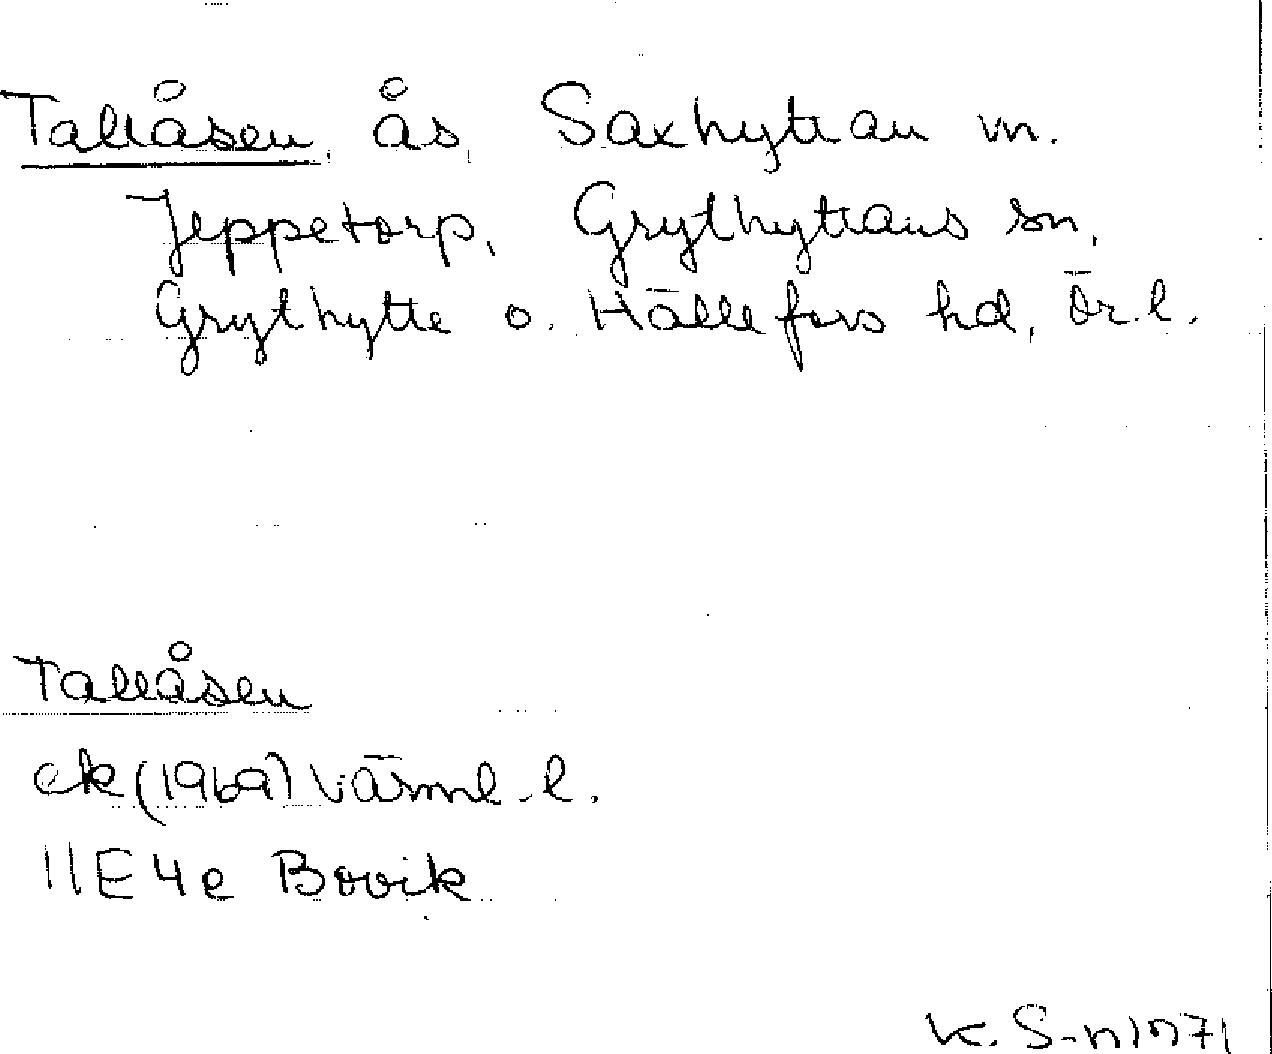 Tallåsen, ås, Saxhyttan m.
Jeppetorp, Grythyttans sn,
Grythytte o. Hällefors hd, Ör. l.
Tallåsen
ek (1969) Värml. l.
11E 4e Bovik
K. S-n 1971